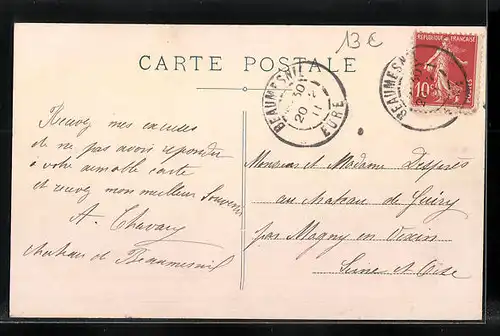 13 €
CARTE POSTALE
BEAUMESNIL
20 -2
11
EURE
RÉPUBLIQUE FRANÇAISE
10c
POSTES
BEAUMESNIL
Recevez mes excuses
de ne pas avoir répondu
à votre aimable carte
et recevez mon meilleur Souvenir
A. Chavany
chateau de Beaumesnil
Monsieur et Madame
au chateau de Guéry
par Magny en Vexin
Seine et Oise